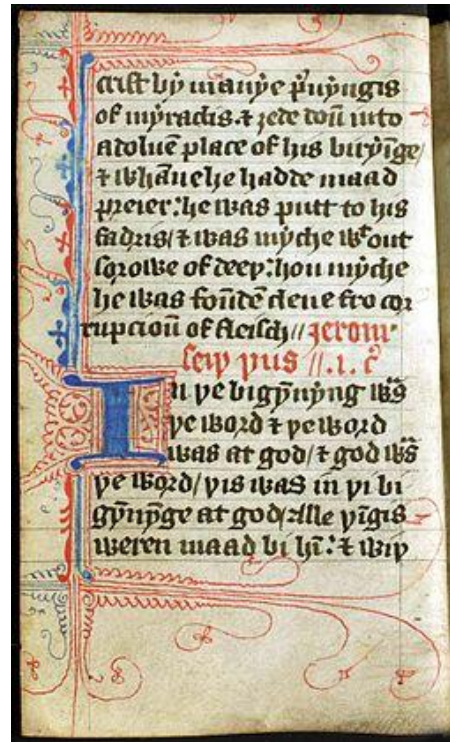 crist bi manye p̃uyngis
of myraclis. & ȝede doũ into
a doluẽ place of his biryỹge/
& whãne he hadde maad
preier: he was putt to his
fadris/ & was myche wᵗ out
sorowe of deeþ: hou myche
he was foũdẽ clene fro cor
rupcioũ of fleisch// Jerom
seiþ þus //.1. c̃
In þe bigỹnyng was
þe word & þe word
was at god/ & god was
þe word/ þis was in þi bi
gỹnỹge at god/ Alle þĩgis
weren maad bi hĩ: & wiþ